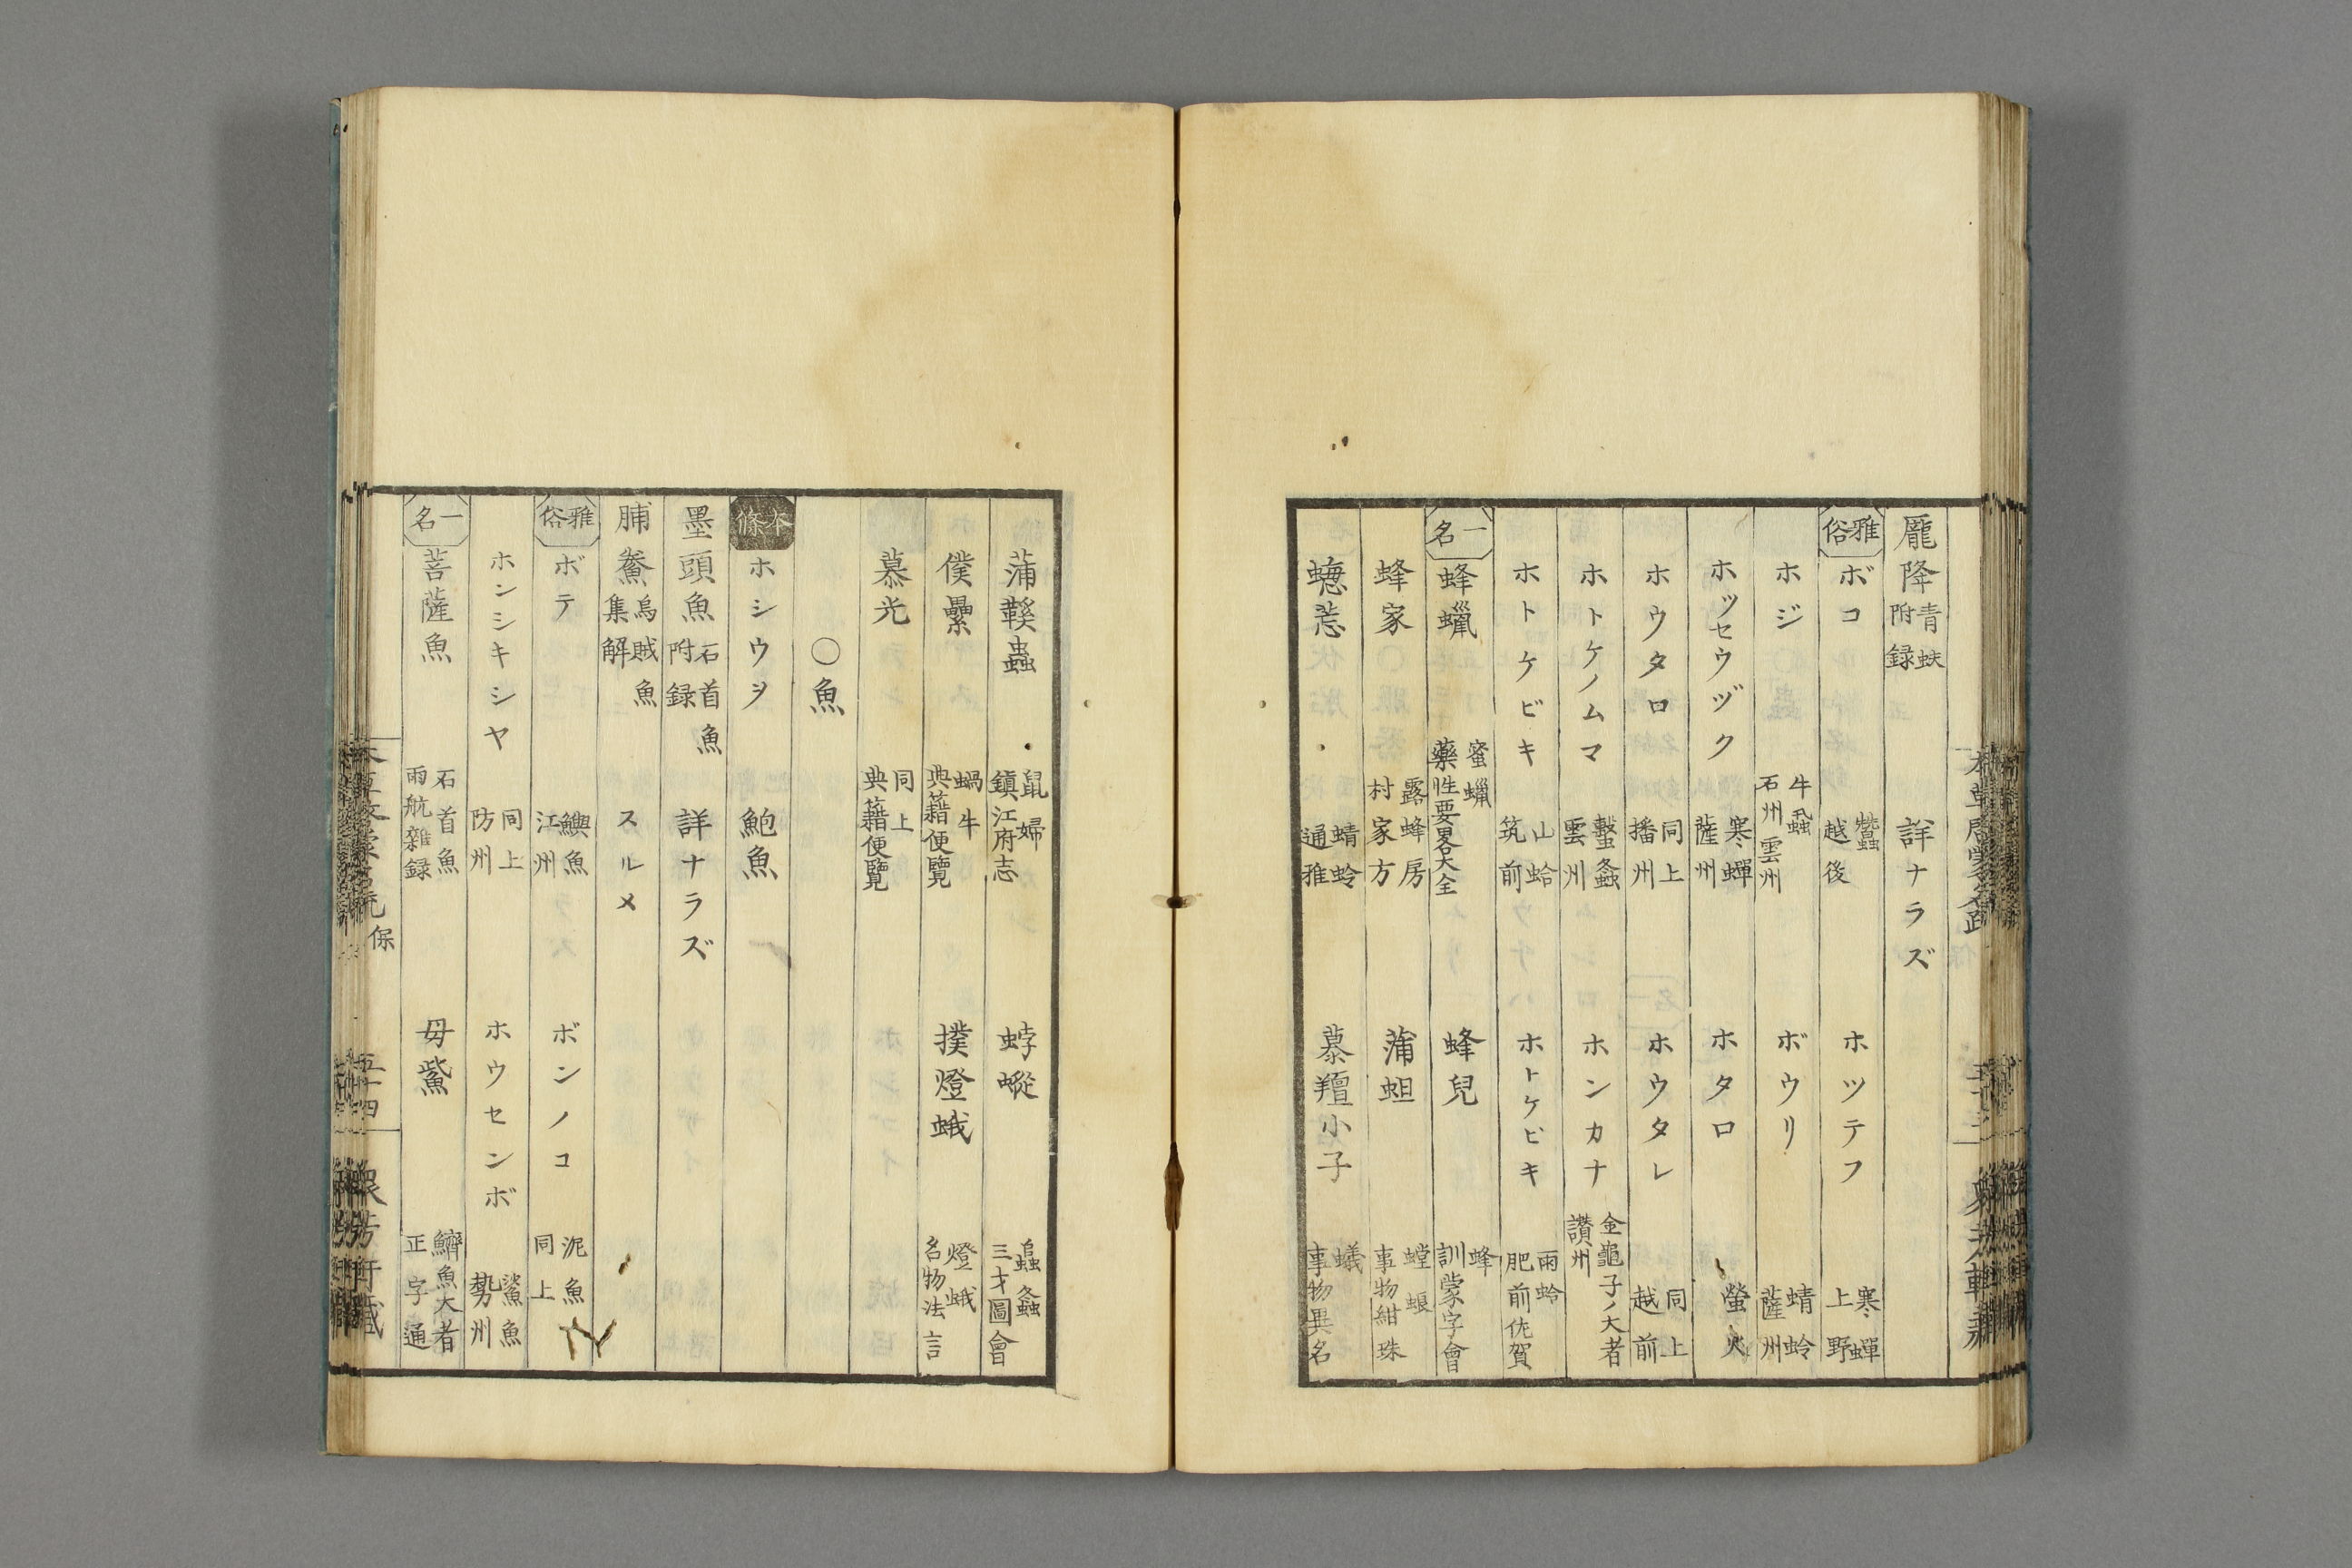 龐降 青蚨附録 詳ナラズ
雅俗 ボコ 蠶越後 ホツテフ 寒蟬上野
ホジ 牛蝨石州雲州 ボウリ 蜻蛉薩州
ホッセウヅク 寒蟬薩州 ホタロ 螢火
ホウタロ 同上播州 ホウタレ 同上越前
ホトケノムマ 螽雲州 ホンカナ 金龜子ノ大者讃州
ホトケビキ 山蛤筑前 ホトケビキ 雨蛤肥前佐賀
一名 蜂蠟 蜜蠟藥性要畧大全 蜂兒 蜂訓蒙字會
蜂家 露蜂房村家方 蒲蛆 螳蜋事物紺珠
蟌 蜻蛉通雅 慕羶小子 蟻事物異名
蒲鞵蟲 鼠婦鎮江府志 蝣 螽三才圖會
僕纍 蝸牛典籍便覽 撲燈蛾 燈蛾名物法言
慕光 同上典籍便覽
〇魚
本條 ホシウヲ 鮑魚
墨頭魚 石首魚附録 詳ナラズ
脯鯗 烏賊魚集解 スルメ
雅俗 ボテ 鱮魚江州 ボンノコ 泥魚同上
ホンシキシヤ 同上防州 ホウセンボ 鯊魚勢州
一名 菩薩魚 石首魚雨航雜録 母鮆 鱭魚大者正字通
保
五十四